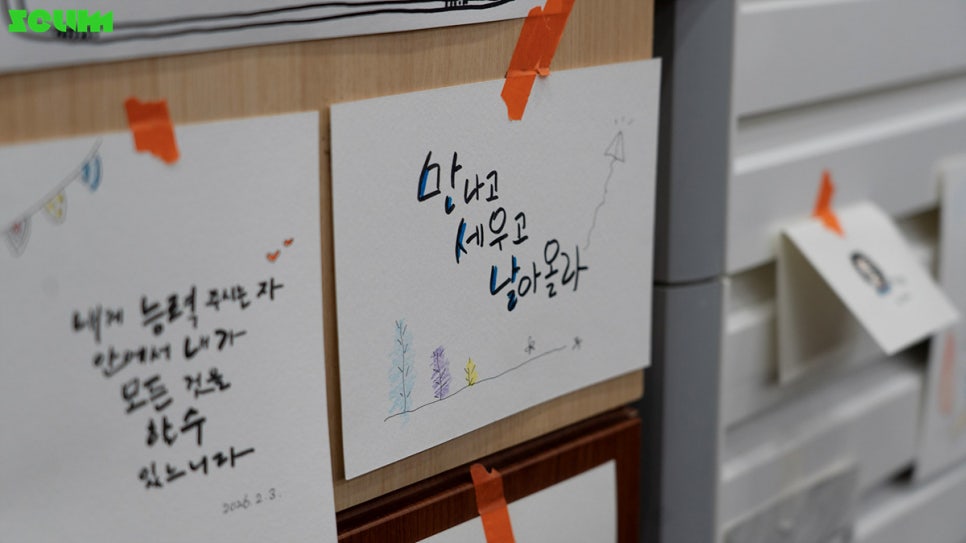 SCUM
내게 능력 주시는 자
안에서 내가
모든 것을
할 수
있느니라
2026.2.3.
만나고
세우고
날아올라